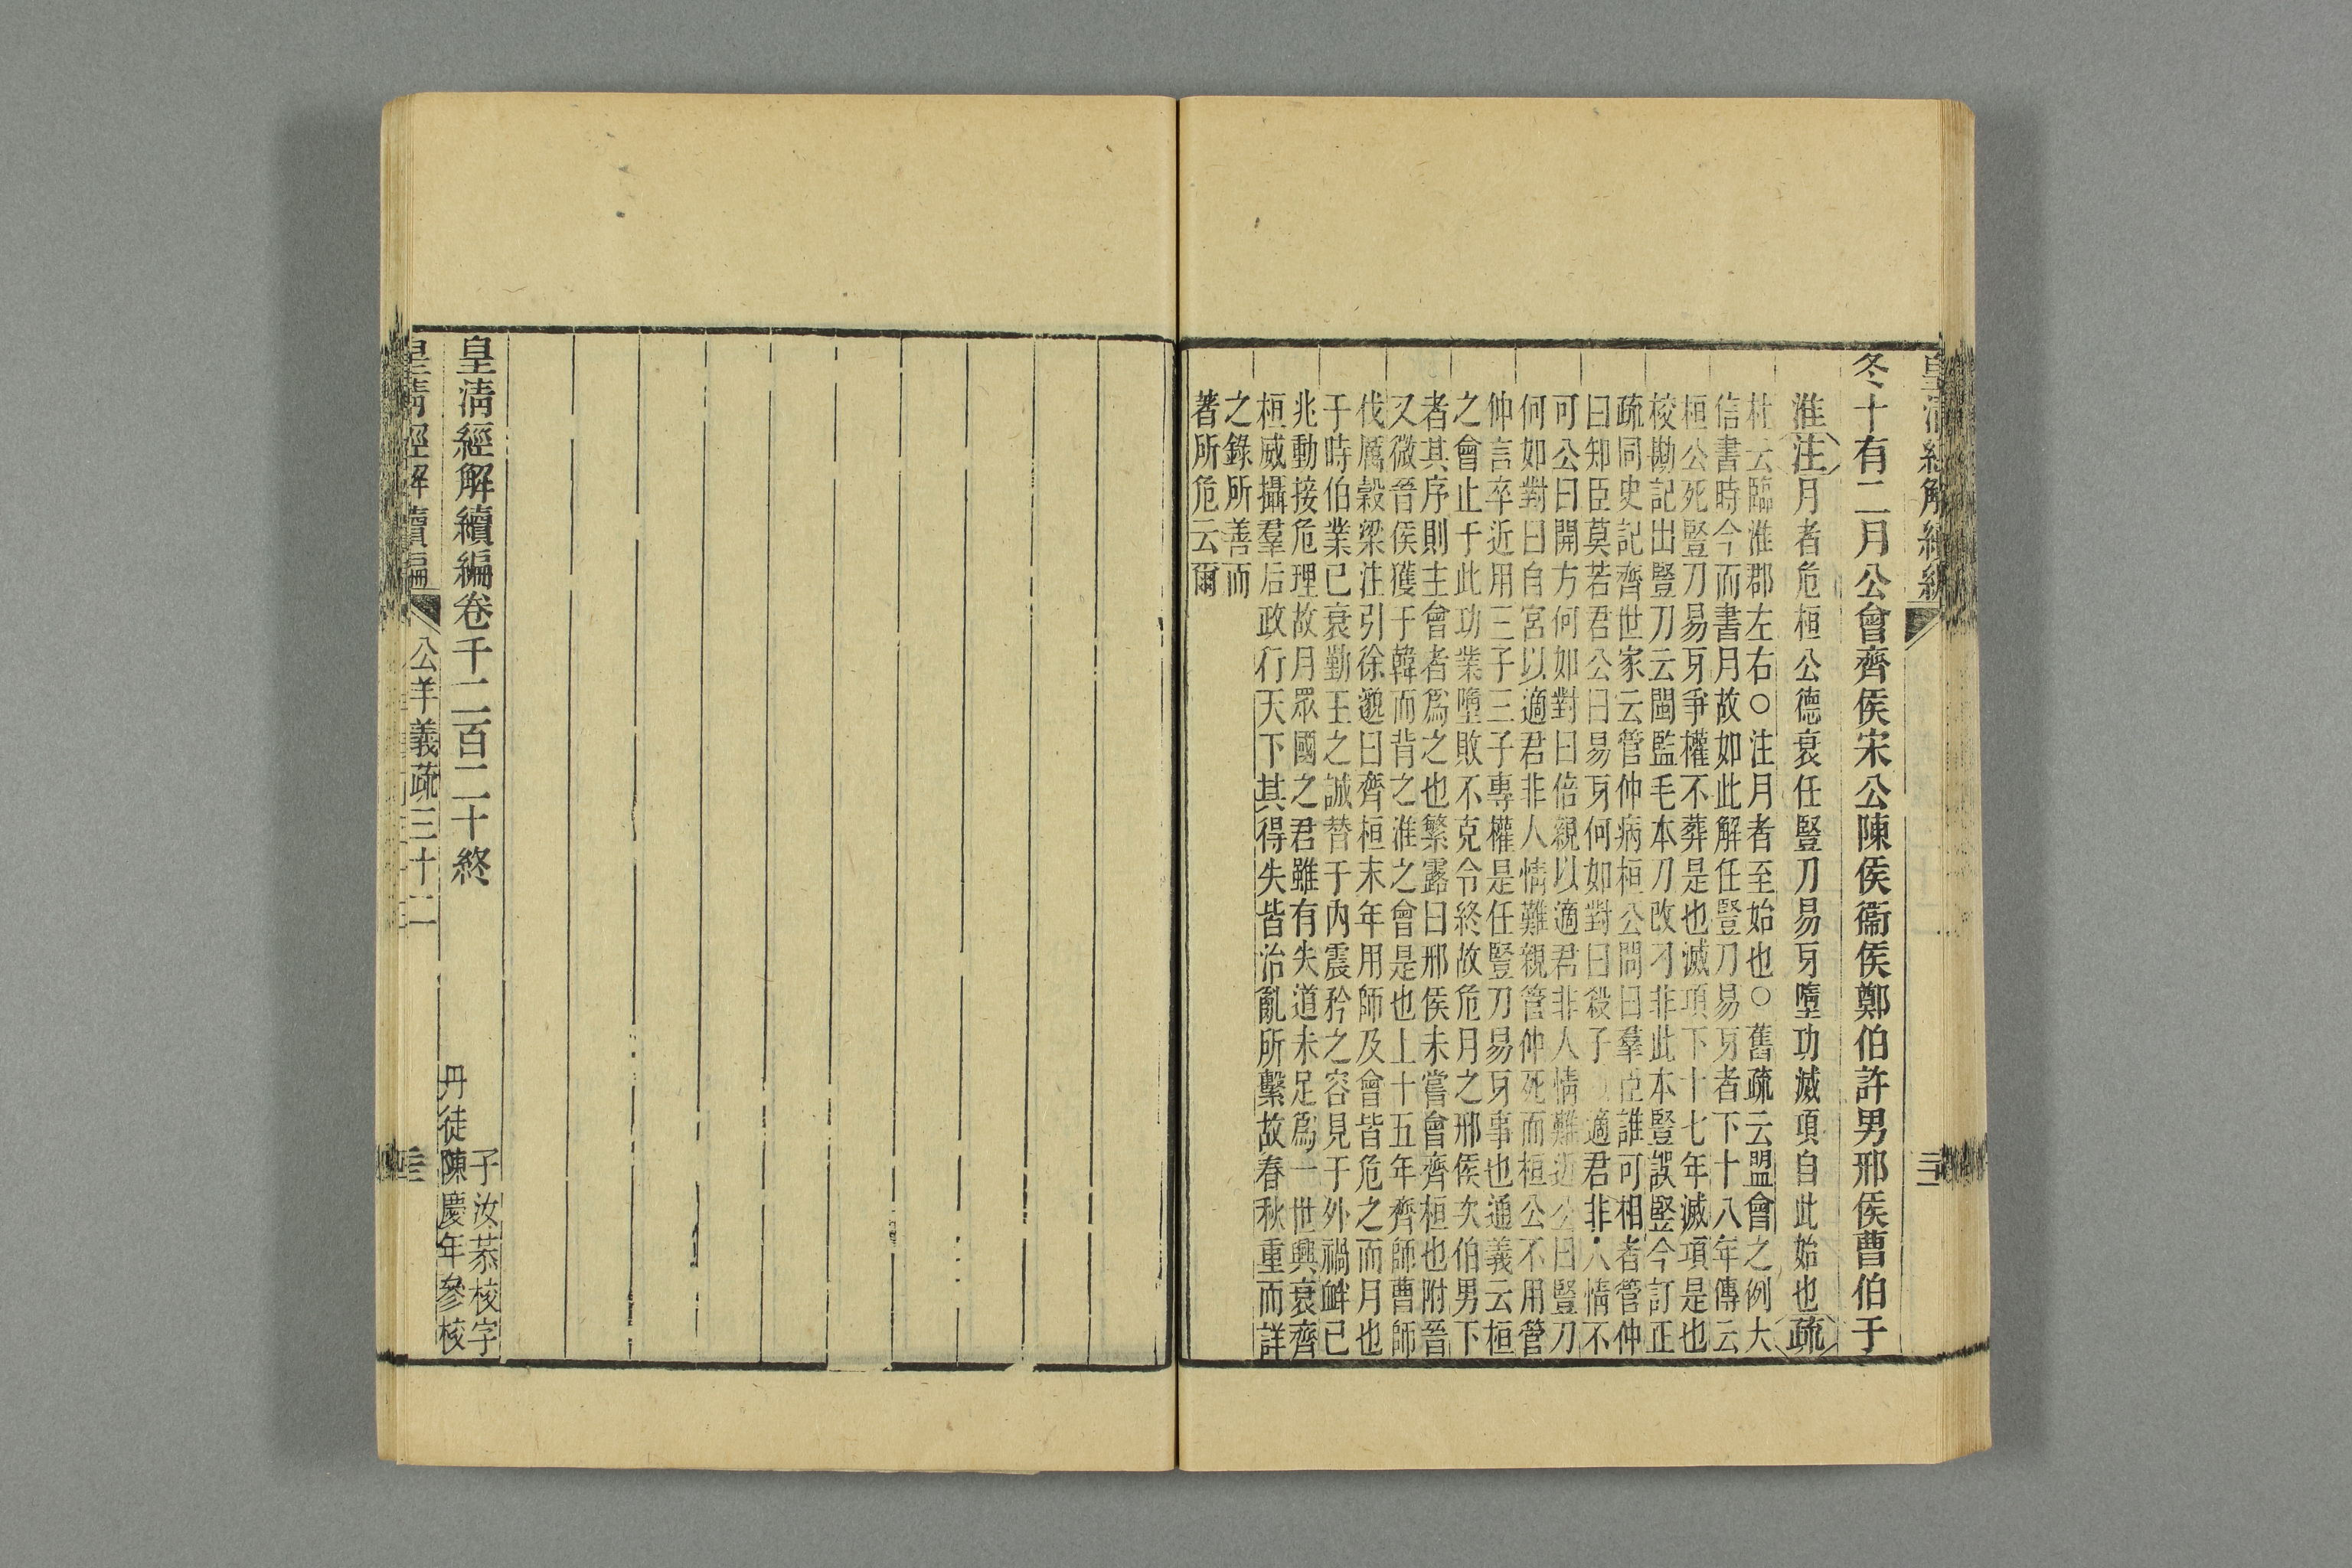 皇清經解續編
冬十有二月公會齊侯宋公陳侯衞侯鄭伯許男邢侯曹伯于
淮注月者危桓公德衰任豎刀易牙墮功滅項自此始也疏
杜云臨淮郡左右○注月者至始也○舊疏云盟會之例大
信書時今而書月故如此解任豎刀易牙者下十八年傳云
桓公死豎刀易牙爭權不葬是也滅項下十七年滅項是也
校勘記出豎刀云閩監毛本刀改刁非此本豎誤竪今訂正
疏同史記齊世家云管仲病桓公問曰羣臣誰可相者管仲
曰知臣莫若君公曰易牙何如對曰殺子適君非人情不
可公曰開方何如對曰倍親以適君非人情難近公曰豎刀
何如對曰自宮以適君非人情難親管仲死而桓公不用管
仲言卒近用三子三子專權是任豎刀易牙事也通義云桓
之會止于此功業墮敗不克令終故危月之邢侯次伯男下
者其序則主會者爲之也繁露曰邢侯未嘗會齊桓也附晉
又微晉侯獲于韓而背之淮之會是也上十五年齊師曹師
伐厲穀梁注引徐邈曰齊桓末年用師及會皆危之而月也
于時伯業已衰勤王之誠替于內震矜之容見于外禍衅已
兆動接危理故月眾國之君雖有失道未足爲一世興衰齊
桓威攝羣后政行天下其得失皆治亂所繫故春秋重而詳
之錄所善而
著所危云爾
皇清經解續編卷千二百二十終
子汝恭校字
丹徒陳慶年參校
皇清經解續編
公羊義疏三十二